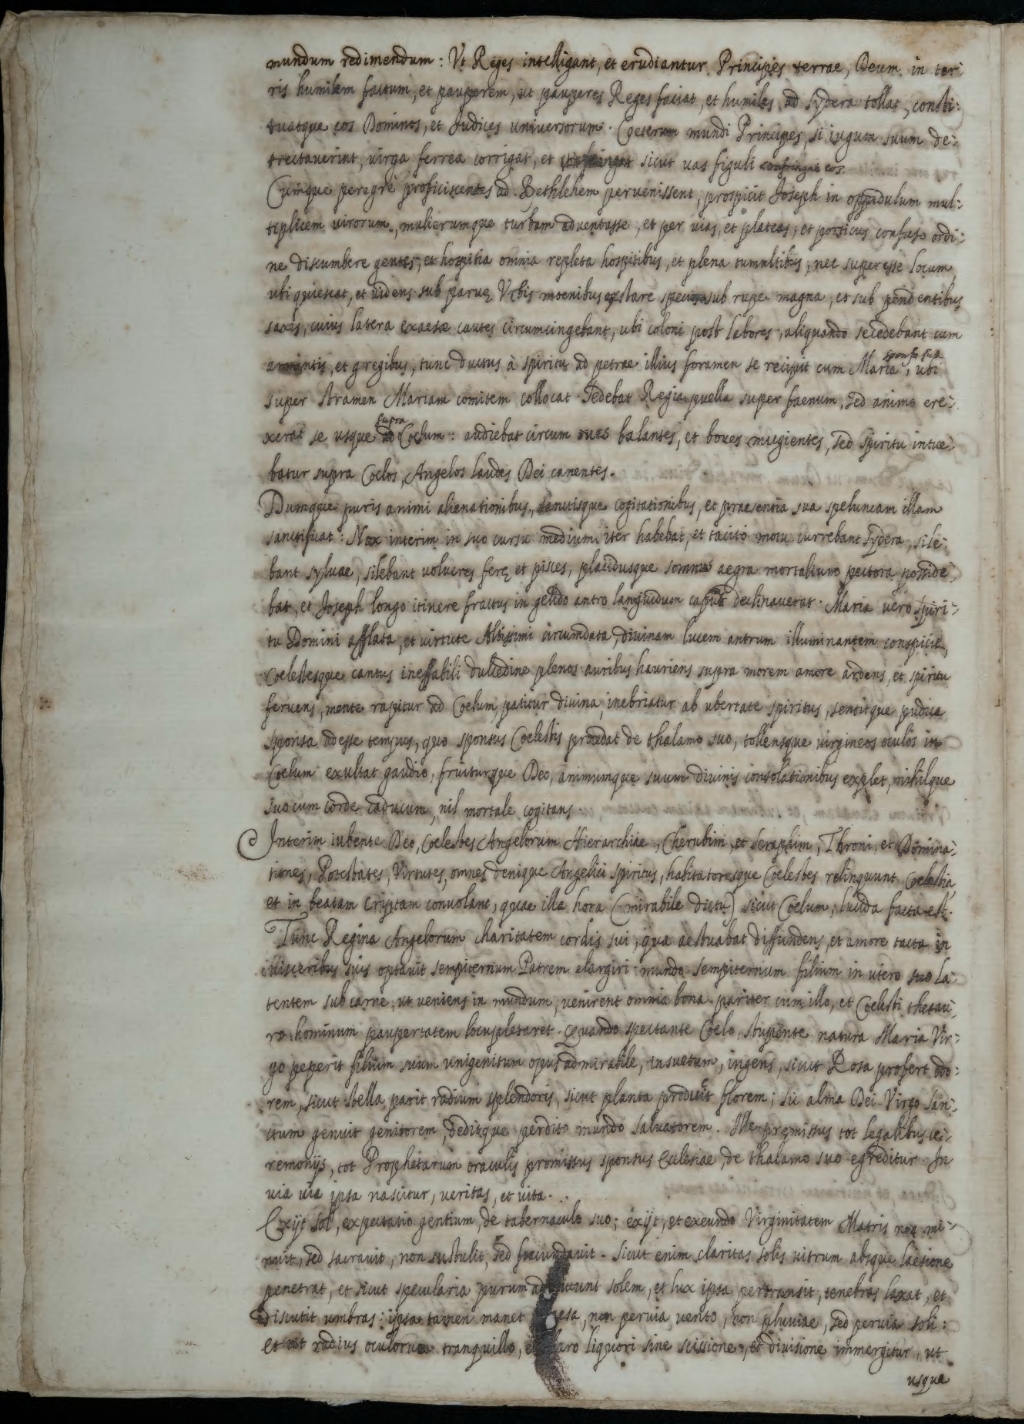 mundum redimendum: Vt Reges intelligant, et erudiantur Principes terrae, Deum in ter:
ris humilem factum, et pauperem, ut pauperes Reges faciat, et humiles ad sydera tollat, consti:
tuatque eos Dominos, et Judices universorum. Coeterum mundi Principes, si iugum suum de:
trectauerint, virga ferrea corrigat, et sicut uas figuli confringat eos.
Cumque peregrè proficiscentes ad Bethlehem pervenissent, prospicit Joseph in oppidulum mul:
tiplicem virorum, mulierumque turbam adventasse, et per uias, et plateas, et porticus confuso ordi:
ne discumbere gentes, et hospitia omnia repleta hospitibus, et plena tumultibus, nec superesse locum,
ubi quiescat, et uidens sub paruę Vrbis moenibus extare specum sub rupe magna, et sub pendentibus
saxis, cuius latera exaesae cautes circumcingebant, ubi coloni post labores aliquando secedebant cum
armentis, et gregibus, tunc ductus à spiritu ad petrae illius foramen se recipit cum Maria sponsa sua, ubi
super stramen Mariam comitem collocat. Sedebat Regia puella super faenum, sed animo ere:
xerat se usque supra Coelum: audiebat circum oues balantes, et boues mugientes, sed spiritu intue:
batur supra Coelos, Angelos laudes Dei canentes.
Dumque puris animi alienationibus, deuotisque cogitationibus, et praesentia sua speluncam illam
sanctificat: Nox interim in suo cursu medium iter habebat, et tacito motu currebant sydera, sile:
bant syluae, silebant volucres ferę et pisces, placidusque somnus aegra mortalium pectora posside:
bat, et Joseph longo itinere fractus in gelido antro languidum caput declinauerat. Maria uero spiri:
tu Domini afflata, et virtute Altissimi circumdata, diuinam lucem antrum illuminantem conspicit,
Coelestesque cantus ineffabili dulcedine plenos auribus hauriens supra morem amore ardens, et spiritu
feruens, mente rapitur ad Coelum, patitur diuina, inebriatur ab ubertate spiritus, sentitque pudica
sponsa adesse tempus, quo sponsus Coelestis procedat de thalamo suo, tollensque virgineos oculos in
Coelum exultat gaudio, fruiturque Deo, animumque suum diuinis consolationibus explet, nihilque
suo cum corde caducum, nil mortale cogitans.
Interim iubente Deo, Coelestes Angelorum Hierarchiae, Cherubim, et Seraphim, Throni, et Domina:
tiones, Potestates, Virtutes, omnes denique Angelici spiritus, habitatoresque Coelestes relinquunt Coelestia,
et in beatam Cryptam conuolant, quae illa hora (mirabile dictu) sicut Coelum, lucida facta est.
Tunc Regina Angelorum charitatem cordis sui, qua aestuabat diffundens, et amore tacta in
uisceribus suis optauit sempiternum Patrem elargiri mundo sempiternum filium in utero suo la:
tentem sub carne, ut veniens in mundum, venirent omnia bona pariter cum illo, et Coelesti thesau:
ro hominum paupertatem locupletaret. Quando spectante Coelo, stupente natura Maria Vir:
go peperit filium suum unigenitum opus admirabile, insuetum, ingens, sicut Rosa profert odo:
rem, sicut stella parit radium splendoris, sicut planta producit florem; sic alma Dei Virgo san:
ctum genuit genitorem, deditque perdito mundo saluatorem. Ille pręmissus tot legalibus ce:
remonijs, tot Prophetarum oraculis promissus sponsus Ecclesiae, de thalamo suo egreditur. In
uia uia ipsa nascitur, veritas, et uita.
Exijt sol, expectatio gentium, de tabernaculo suo; exijt, et exeundo Virginitatem Matris non mi:
nuit, sed sacrauit, non sustulit, sed foecundauit. Sicut enim claritas solis uitrum absque laesione
penetrat, et sicut specularia purum solem, et lux ipsa pertransit, tenebras laxat, et
discutit umbras: ipsa tamen manet, non peruia vento, non pluuiae, sed peruia soli:
et ut radius oculorum tranquillo, liquori sine scissione, et diuisione immergitur, ut
usque